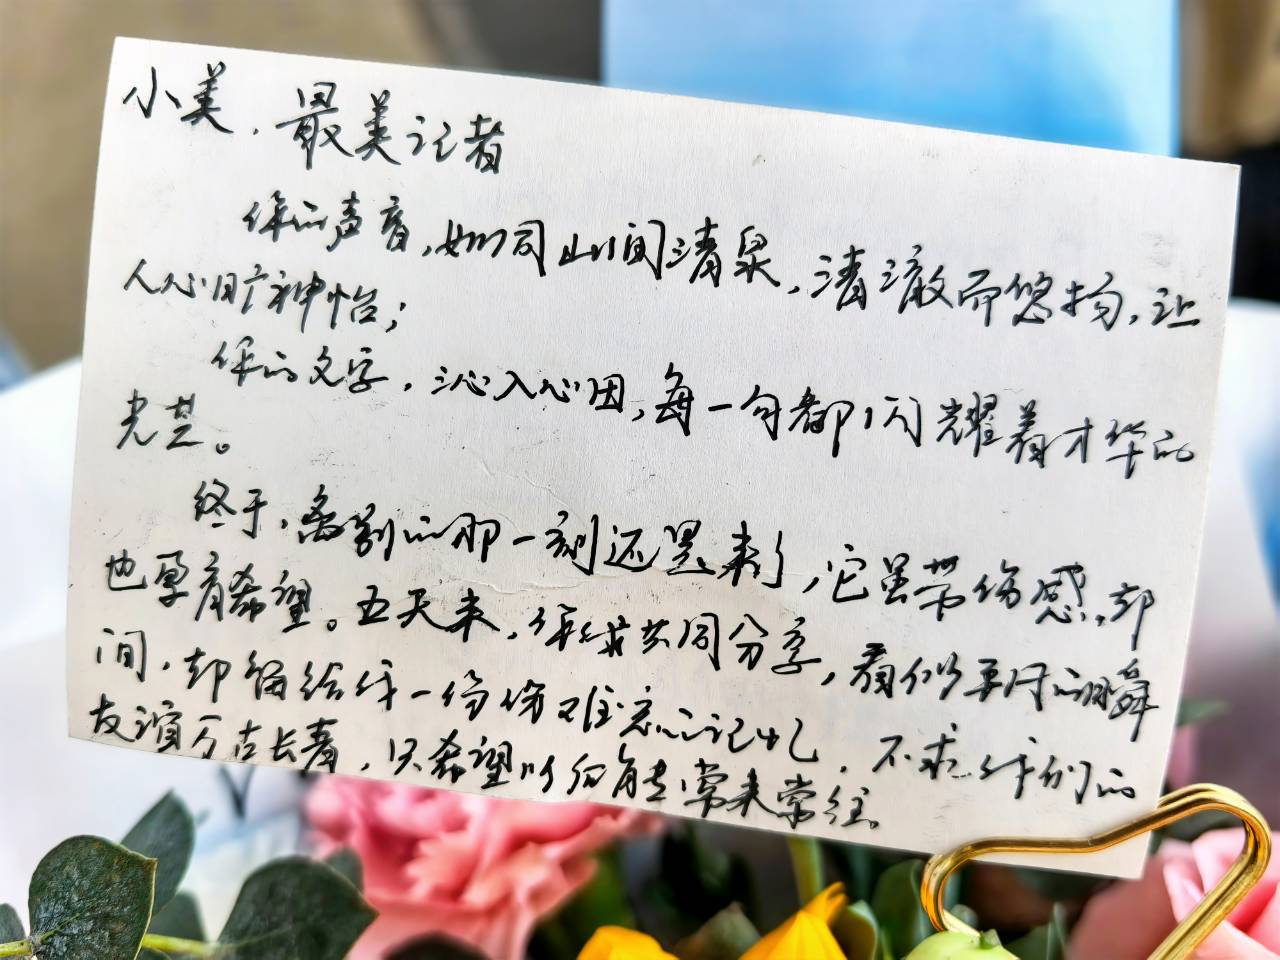 小美,最美记者
你的声音,如同山间清泉,清澈而悠扬,让
人心旷神怡;
你的文字,沁入心田,每一句都闪耀着才华的
光芒。
终于,离别的那一刻还是来了,它虽带伤感,却
也孕育希望。五天来,你我共同分享,看似平凡的瞬
间,却留给我一份份难忘记忆,不求我们的
友谊万古长青,只希望以后能去常来常往。